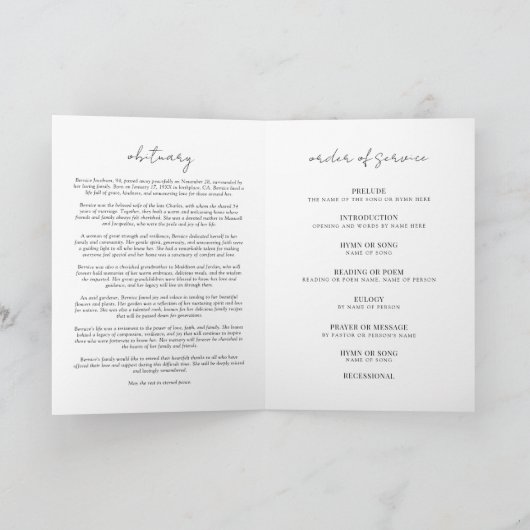 obituary
Bernice Jacobson, 94, passed away peacefully on November 28, surrounded by
her loving family. Born on January 17, 19XX in birthplace, CA. Bernice lived a
life full of grace, kindness, and unwavering love for those around her.
Bernice was the beloved wife of the late Charles, with whom she shared 54
years of marriage. Together, they built a warm and welcoming home where
friends and family always felt cherished. She was a devoted mother to Maxwell
and Jacqueline, who were the pride and joy of her life.
A woman of great strength and resilience, Bernice dedicated herself to her
family and community. Her gentle spirit, generosity, and unwavering faith were
a guiding light to all who knew her. She had a remarkable talent for making
everyone feel special and her home was a sanctuary of comfort and love.
Bernice was also a cherished grandmother to Maddison and Jordan, who will
forever hold memories of her warm embraces, delicious meals, and the wisdom
she imparted. Her great-grandchildren were blessed to know her love and
guidance, and her legacy will live on through them.
An avid gardener, Bernice found joy and solace in tending to her beautiful
flowers and plants. Her garden was a reflection of her nurturing spirit and love
for nature. She was also a talented cook, known for her delicious family recipes
that will be passed down for generations.
Bernice's life was a testament to the power of love, faith, and family. She leaves
behind a legacy of compassion, resilience, and joy that will continue to inspire
all who were fortunate to know her. Her memory will forever be cherished in
the hearts of her family and friends.
Bernice's family would like to extend their heartfelt thanks to all who have
offered their love and support during this difficult time. She will be deeply missed
and lovingly remembered.
May she rest in eternal peace.
order of service
PRELUDE
THE NAME OF THE SONG OR HYMN HERE
INTRODUCTION
OPENING AND WORDS BY NAME HERE
HYMN OR SONG
NAME OF SONG
READING OR POEM
READING OR POEM NAME, NAME OF PERSON
EULOGY
BY NAME OF PERSON
PRAYER OR MESSAGE
BY PASTOR OR PERSON'S NAME
HYMN OR SONG
NAME OF SONG
RECESSIONAL